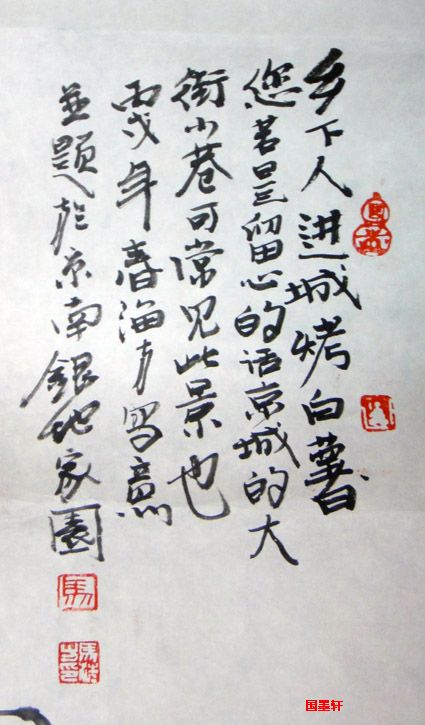 乡下人进城烤白薯
您若是留心的话京城的大
街小巷可常见此景也
丙戌年春海方写意
並题於京南銀地家園
馬
国墨轩